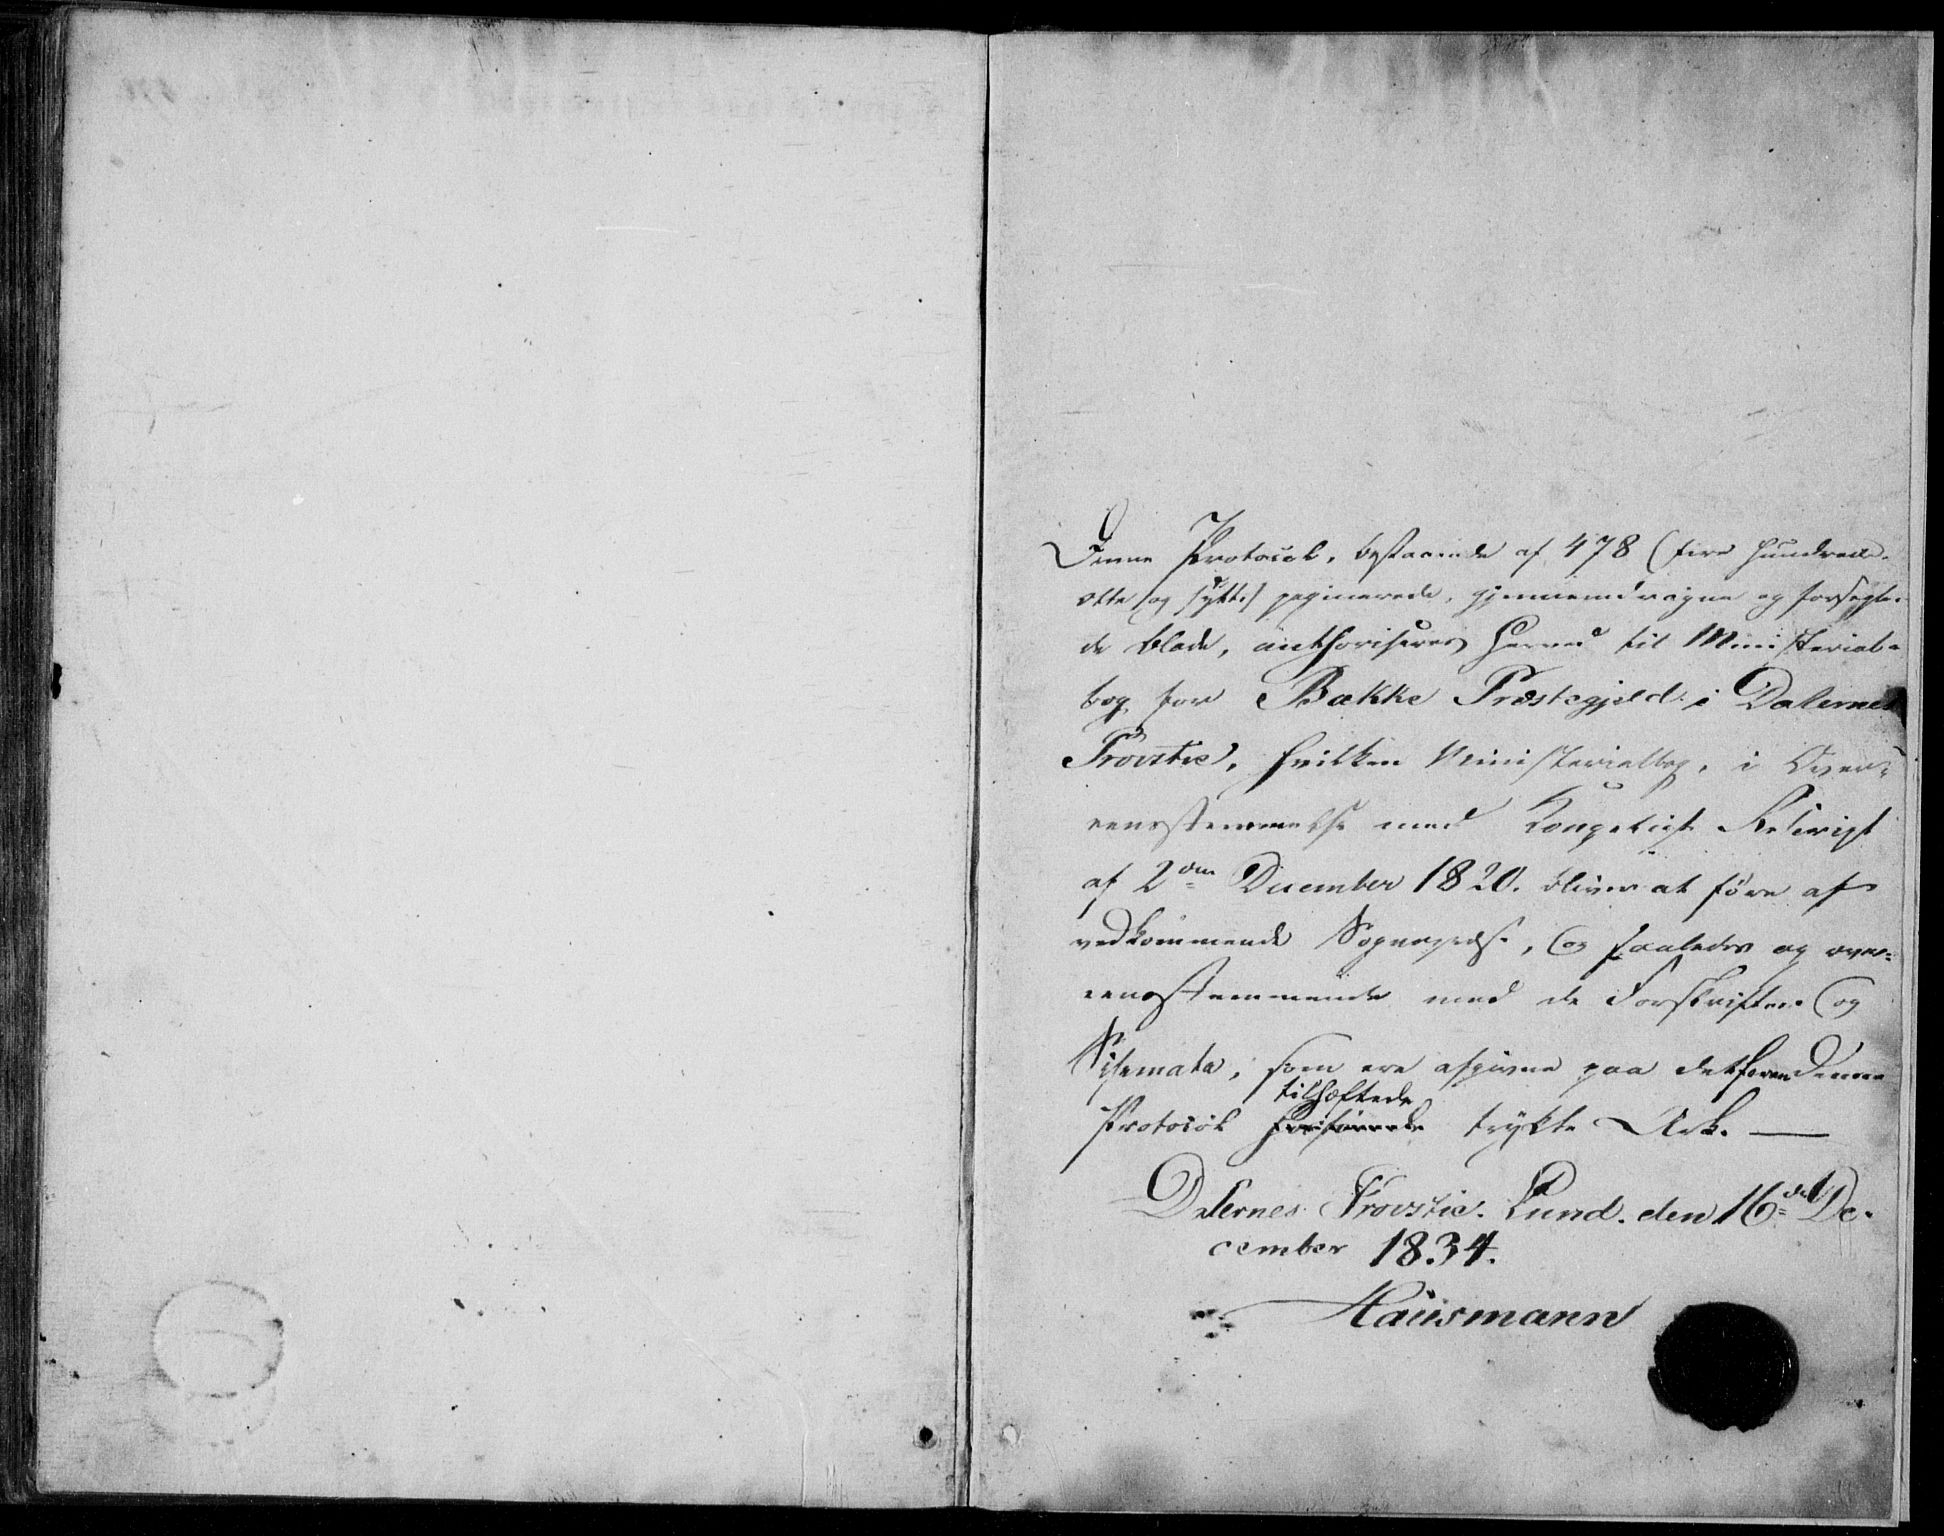 Denne Protocol, bestaaende af 478 (fire hundrede
otte og sytti) paginerede, gjennemdragne og forsegle-
de Blade, authoriseres herved til Ministerial-
bog for Bakke Præstegjeld i Dalernes
Provstie, hvilken Ministerialbog, i Over-
eensstemmelse med Kongeligt Rescript
af 2den December 1820. bliver at føre af
vedkommende Sognepræst, og saaledes og over-
eensstemmende med de Forskrifter og
Schemata, som ere afgivne paa det foran Denne
tilhæftede
Protocol trykte Ark. —
Dalernes Provstie. Lund. den 16de De-
cember 1834.
Hausmann